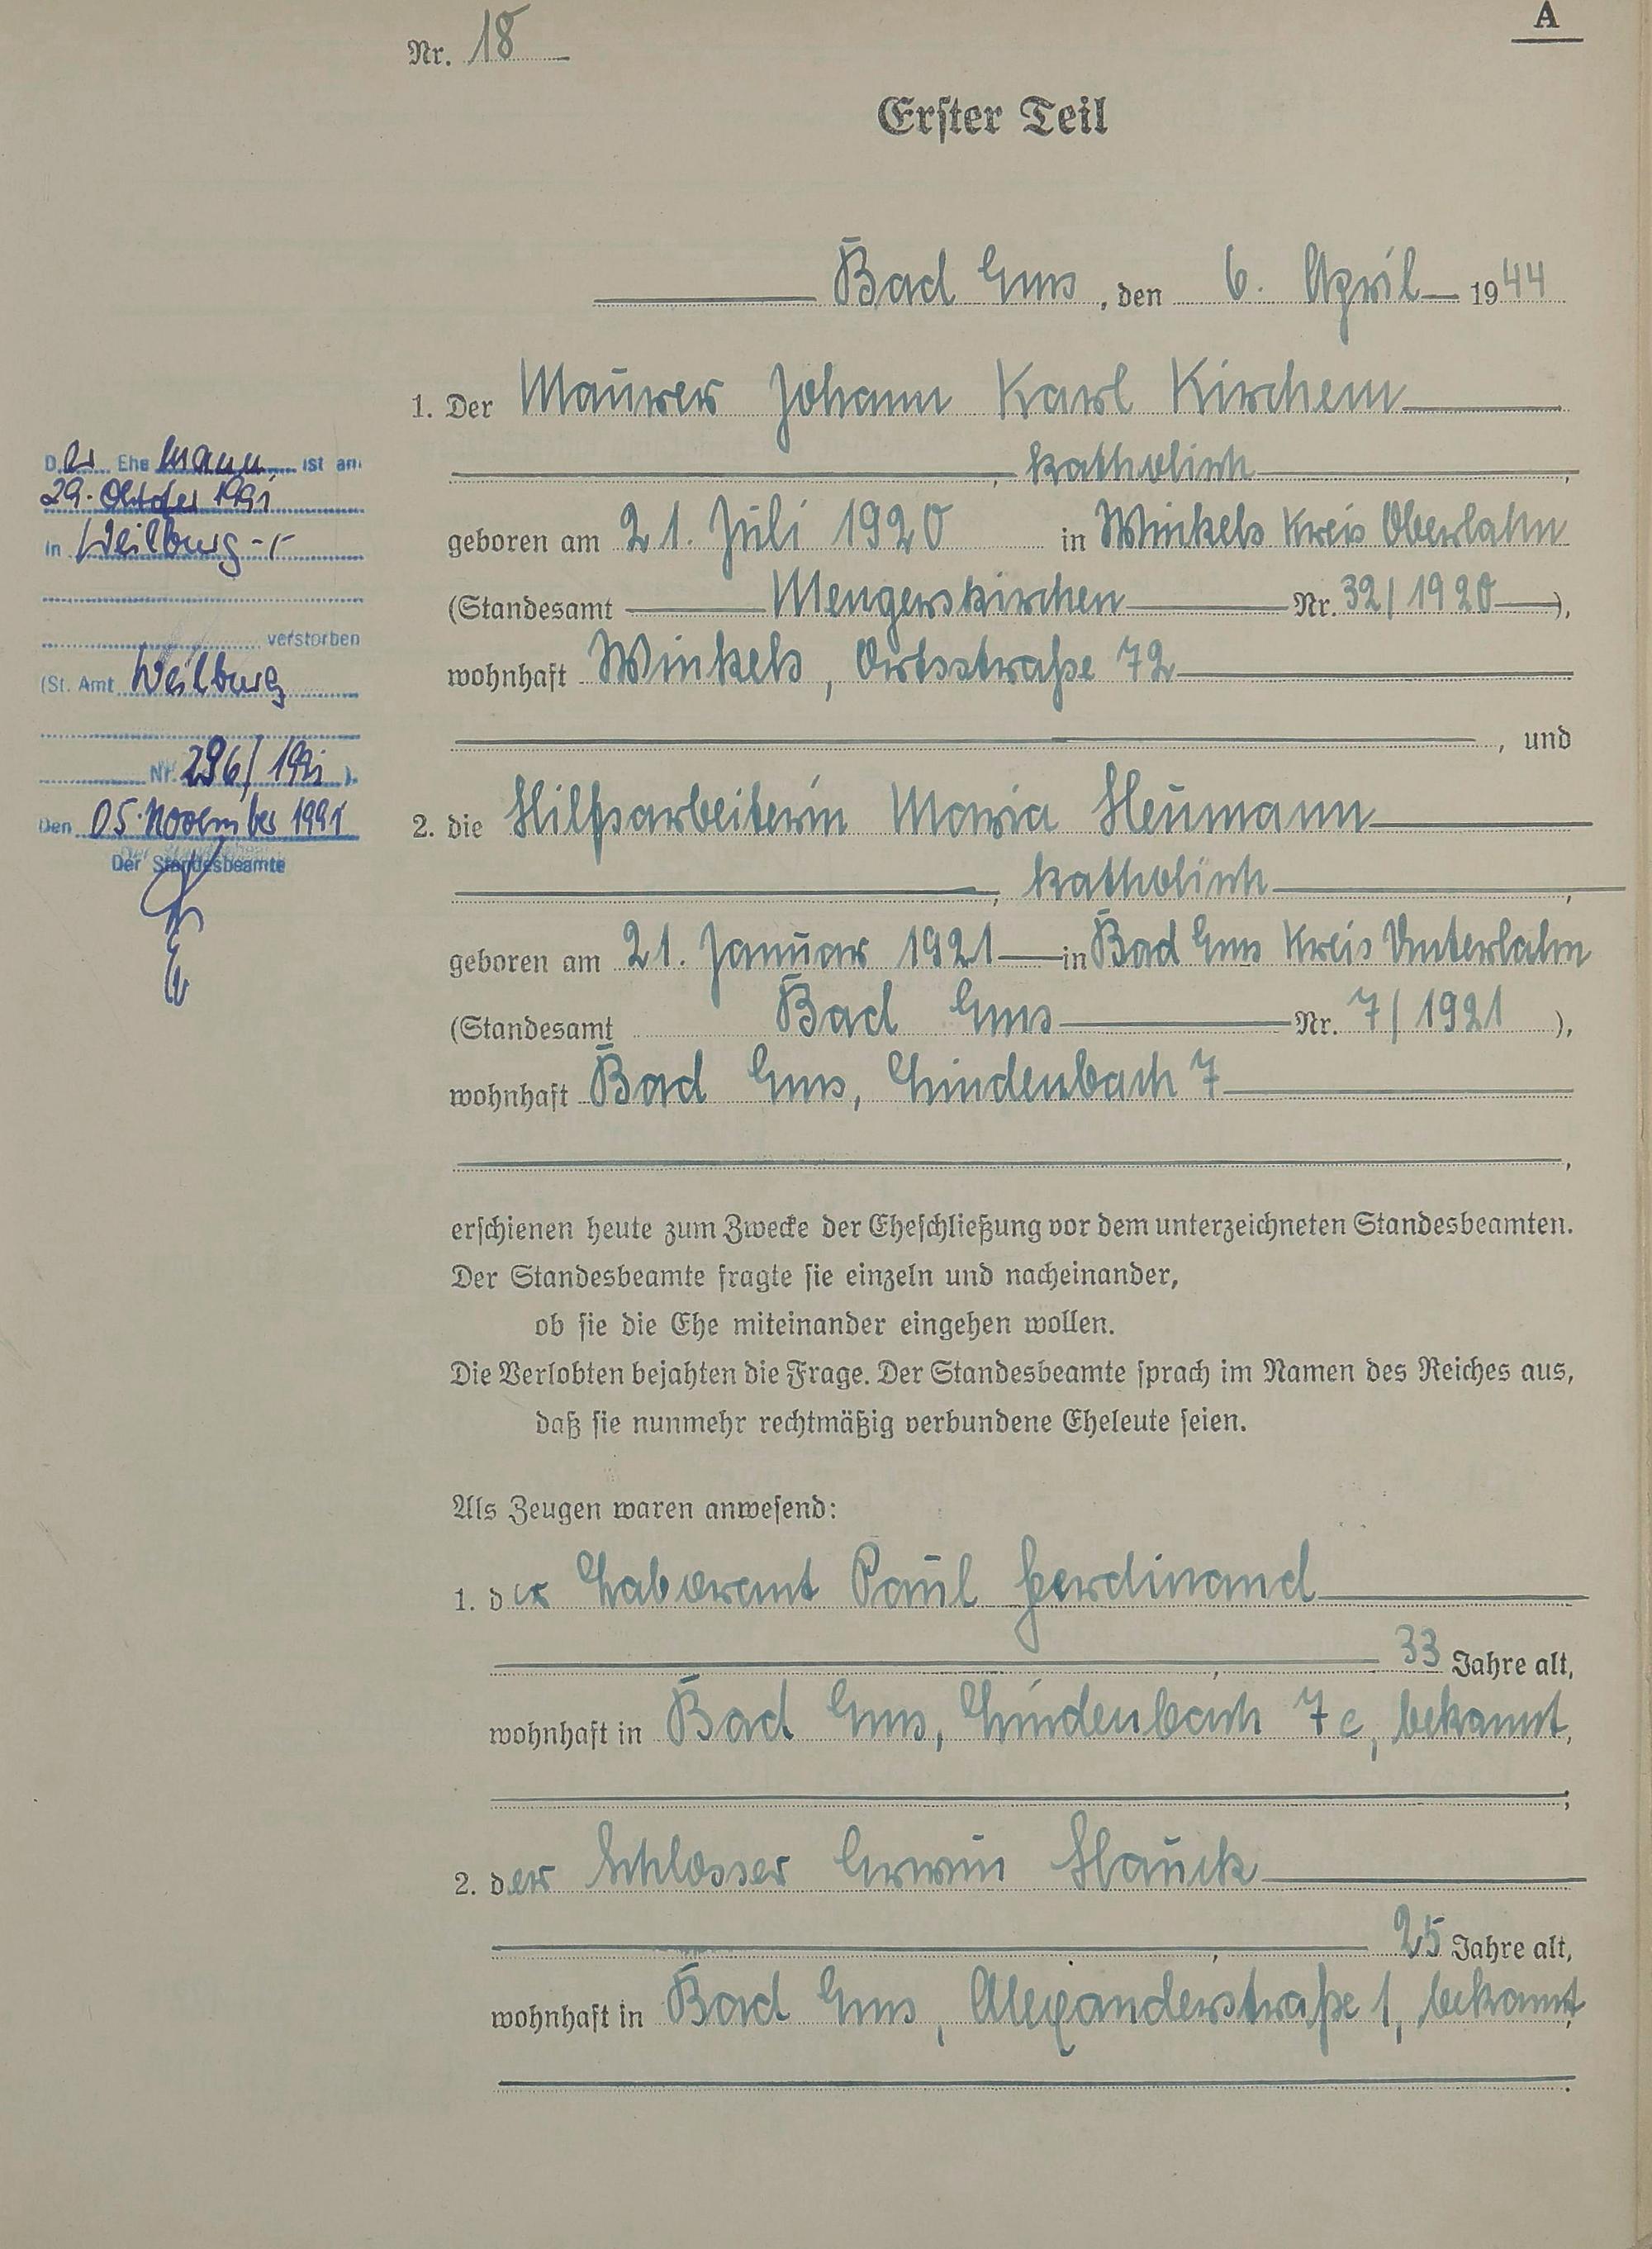 A
Nr. 18
Erster Teil
Bad Ems, den 6. April 1944
1. Der Maurer Johann Karl Kirchem
, katholisch,
geboren am 21. Juli 1920 in Winkels Kreis Oberlahn
(Standesamt Mengerskirchen Nr. 32/1920),
wohnhaft Winkels, Ortsstraße 72
, und
2. die Hilfsarbeiterin Maria Heumann
, katholisch,
geboren am 21. Januar 1921 in Bad Ems Kreis Unterlahn
(Standesamt Bad Ems Nr. 7/1921),
wohnhaft Bad Ems, Lindenbach 7
,
erschienen heute zum Zwecke der Eheschließung vor dem unterzeichneten Standesbeamten.
Der Standesbeamte fragte sie einzeln und nacheinander,
ob sie die Ehe miteinander eingehen wollen.
Die Verlobten bejahten die Frage. Der Standesbeamte sprach im Namen des Reiches aus,
daß sie nunmehr rechtmäßig verbundene Eheleute seien.
Als Zeugen waren anwesend:
1. der Laborant Paul Ferdinand
, 33 Jahre alt,
wohnhaft in Bad Ems, Lindenbach 7c, bekannt,
;
2. der Schlosser Erwin Hauck
, 25 Jahre alt,
wohnhaft in Bad Ems, Alexanderstraße 1, bekannt
.
Der Ehemann ist am
29. Oktober 1991
in Weilburg
verstorben
(St. Amt Weilburg
Nr. 296/1991).
Den 05. November 1991
Der Standesbeamte